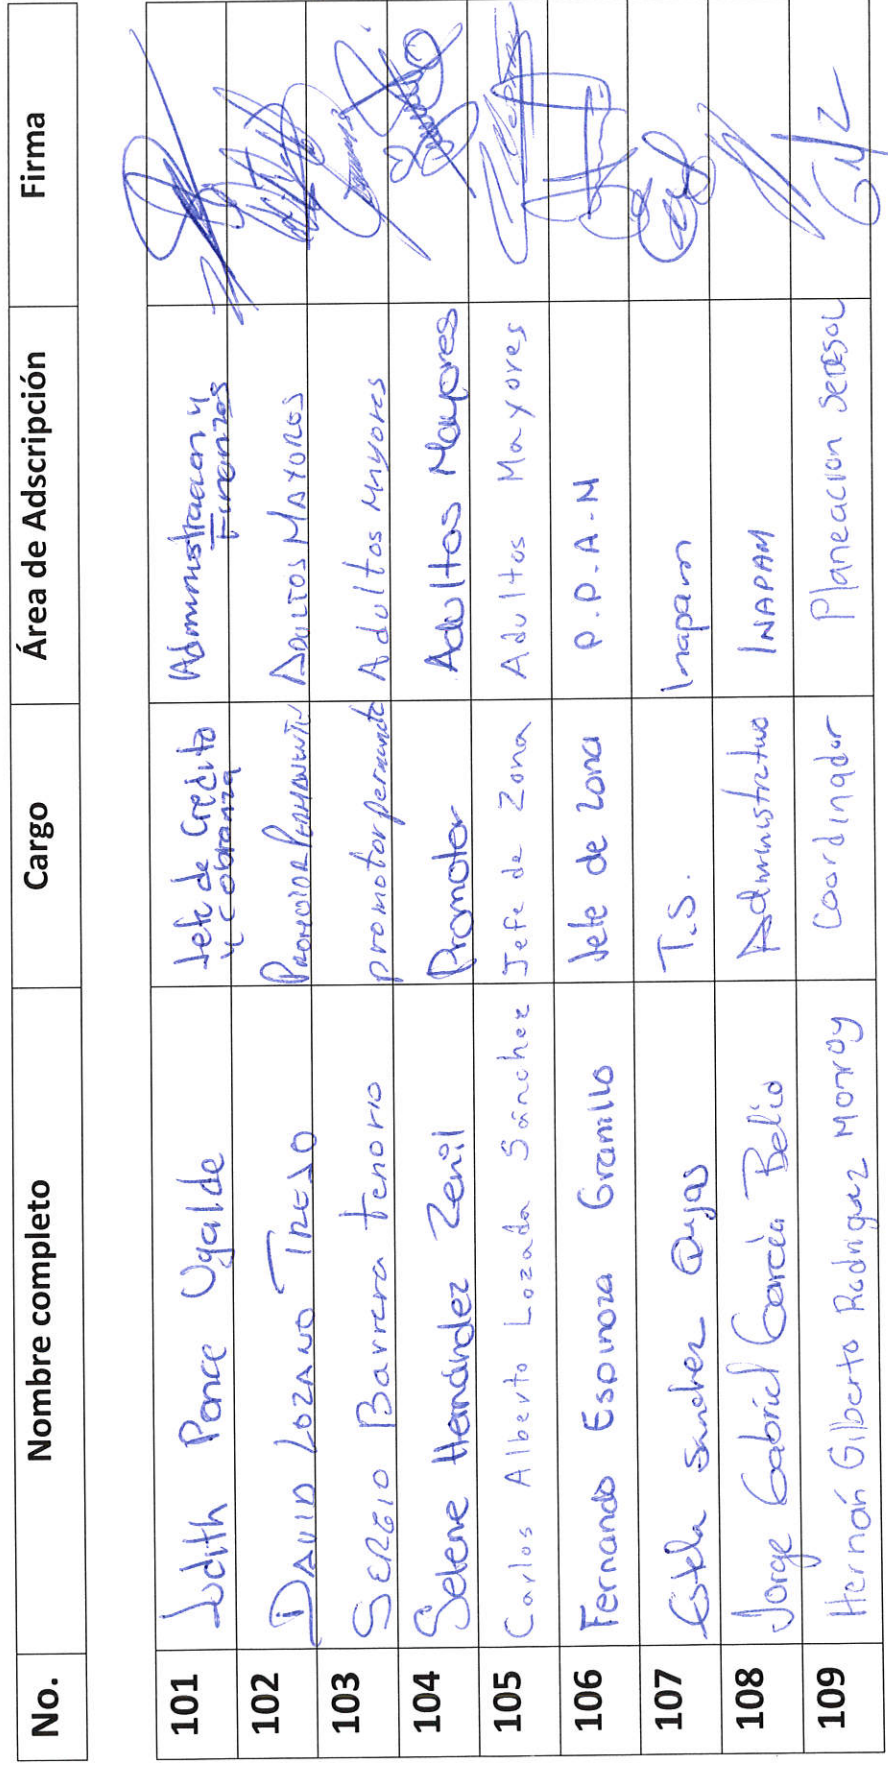 No. Nombre completo Cargo Área de Adscripción Firma
101 Judith Ponce Ugalde Jefe de Credito y Cobranza Administracion y Finanzas
102 DAVID LOZANO TREJO PROMOTOR PERMANENTE ADULTOS MAYORES
103 SERGIO Barrera tenorio promotor permanente Adultos mayores
104 Selene Hernández Zenil Promotor Adultos Mayores
105 Carlos Alberto Lozada Sánchez Jefe de Zona Adultos Mayores
106 Fernando Espinoza Gramillo Jefe de zona P.P.A.M
107 Estela Sanchez T.S. Inapam
108 Jorge Gabriel García Belio Administrativo INAPAM
109 Hernán Gilberto Rodriguez Monroy Coordinador Planeacion SEDESOL